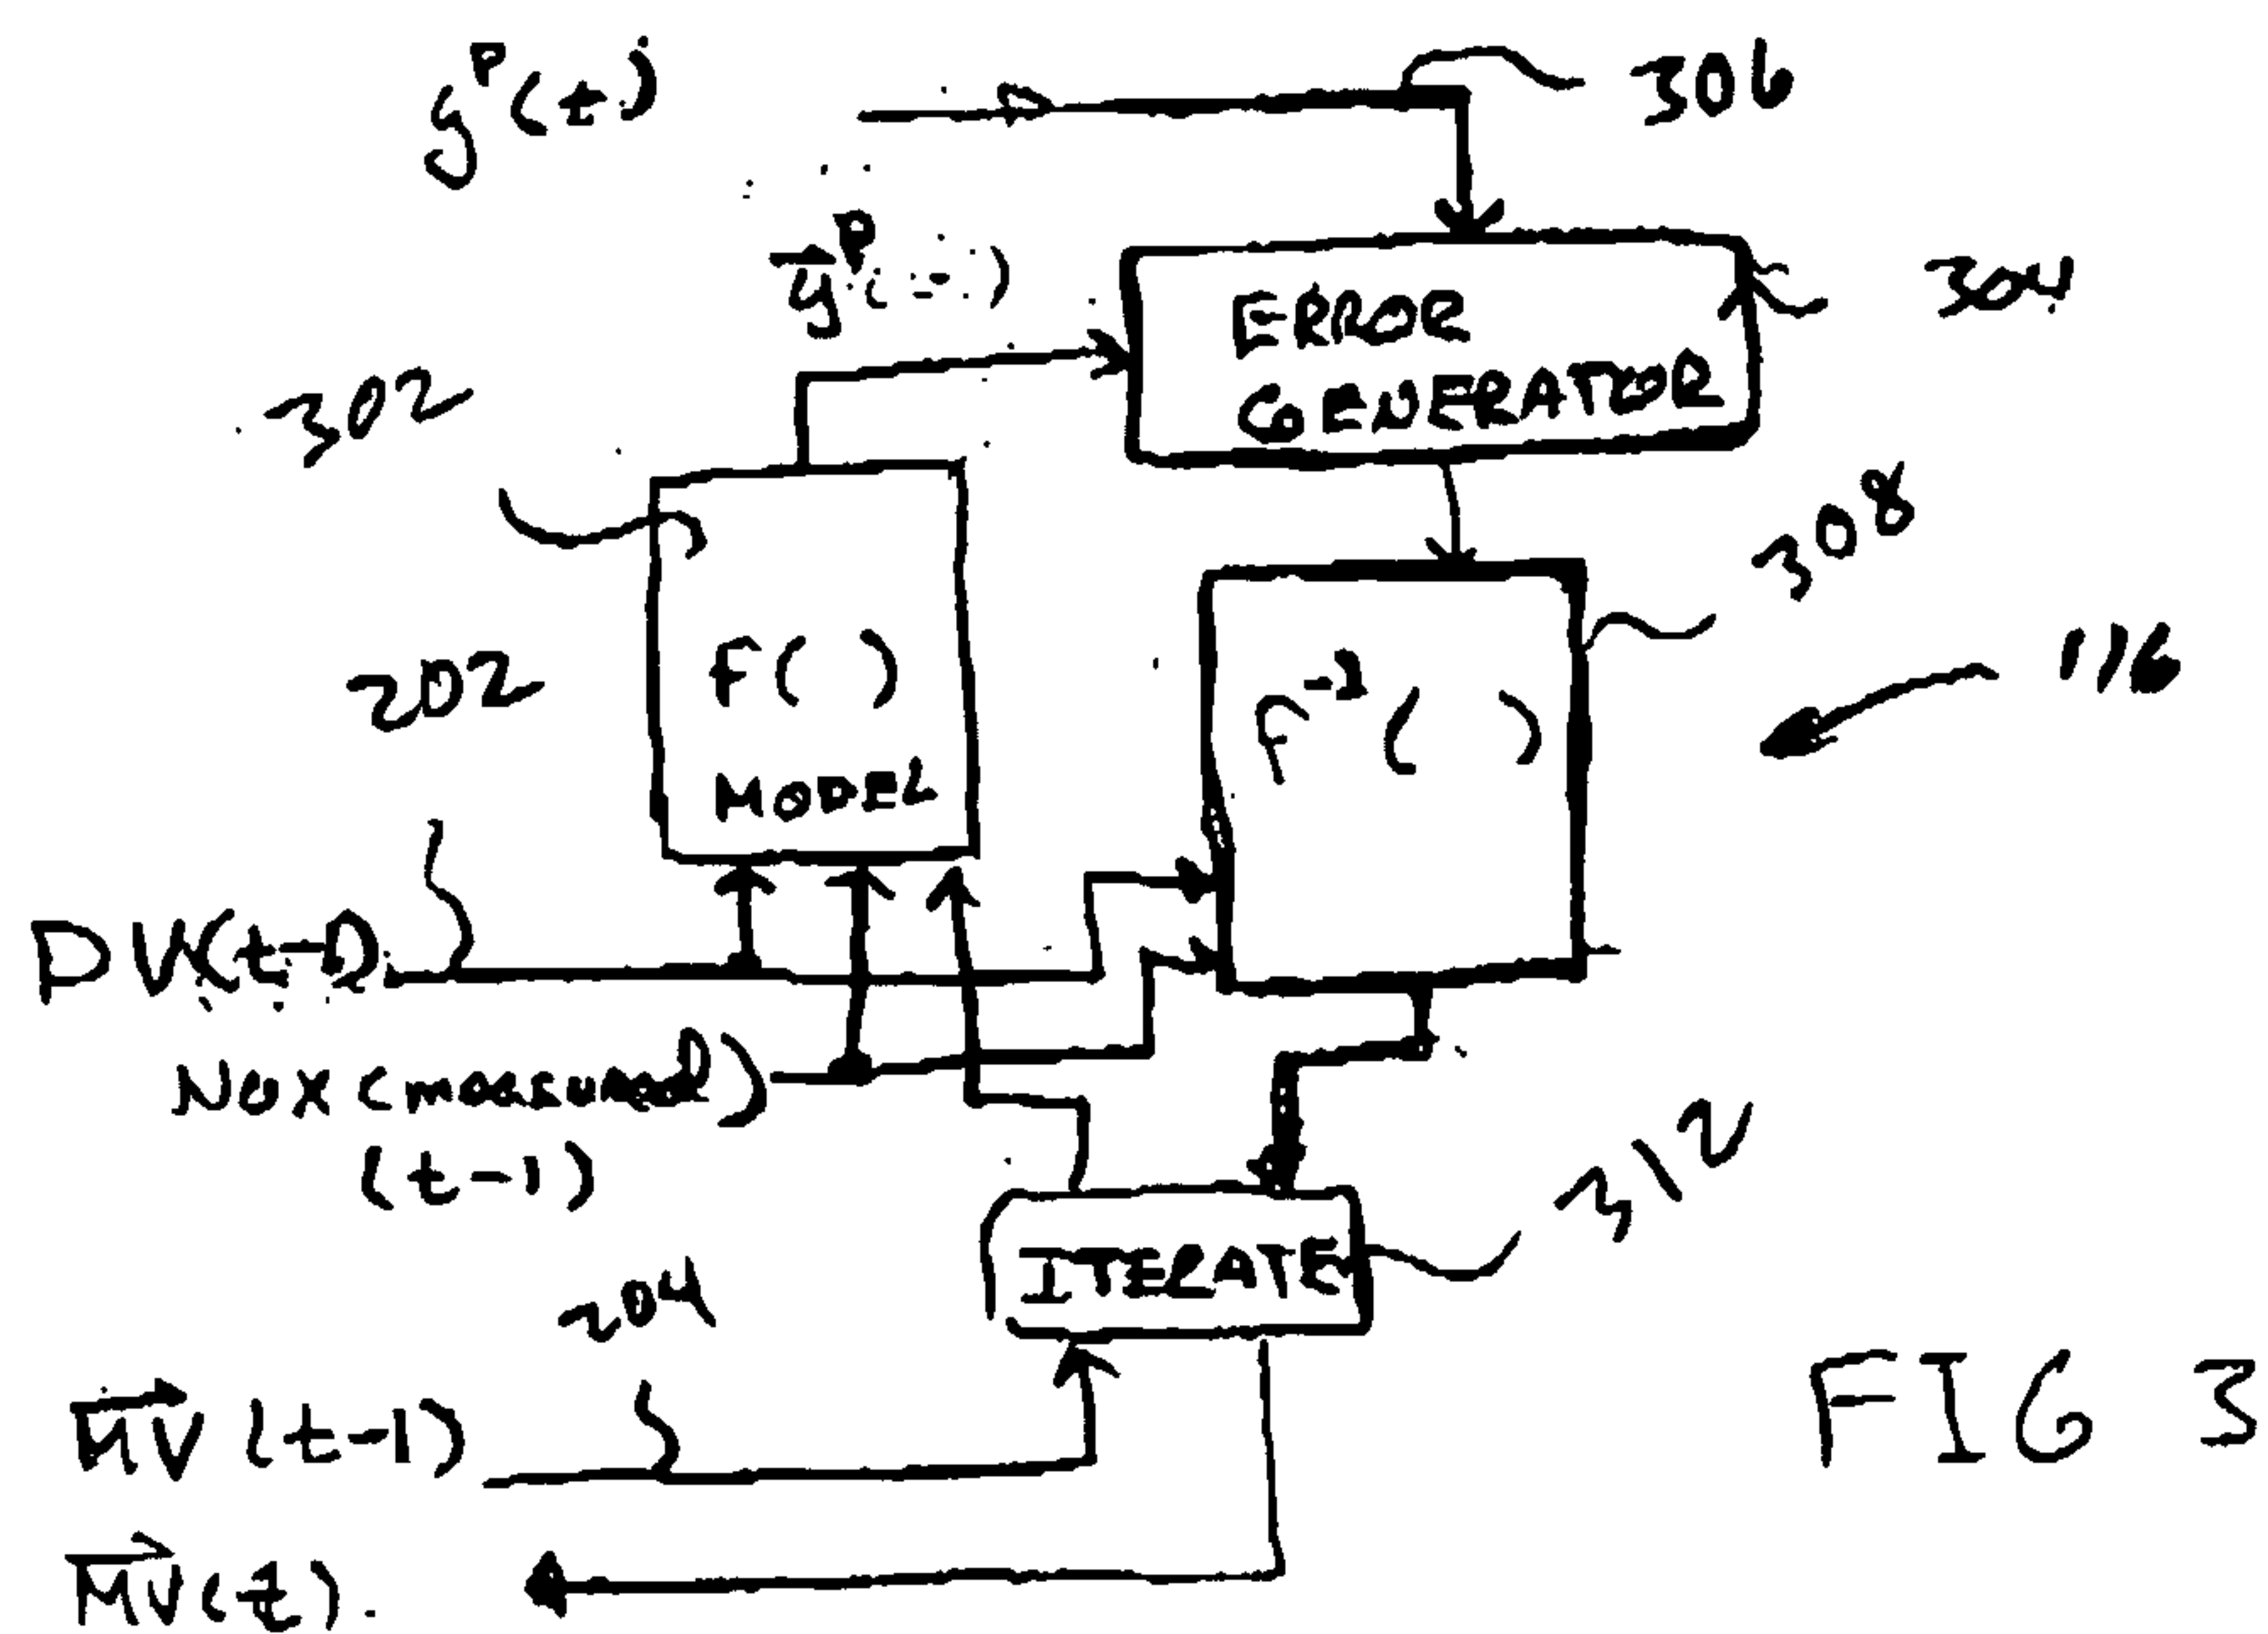 yᴾ(t)
306
y⃗ᴾ(t)
304
ERROR
GENERATOR
302
308
116
202
F( )
MODEL
F⁻¹( )
DV(t-1)
NOX (measured)
(t-1)
312
ITERATE
204
M⃗V⃗ (t-1)
FIG 3
M⃗V⃗(t).